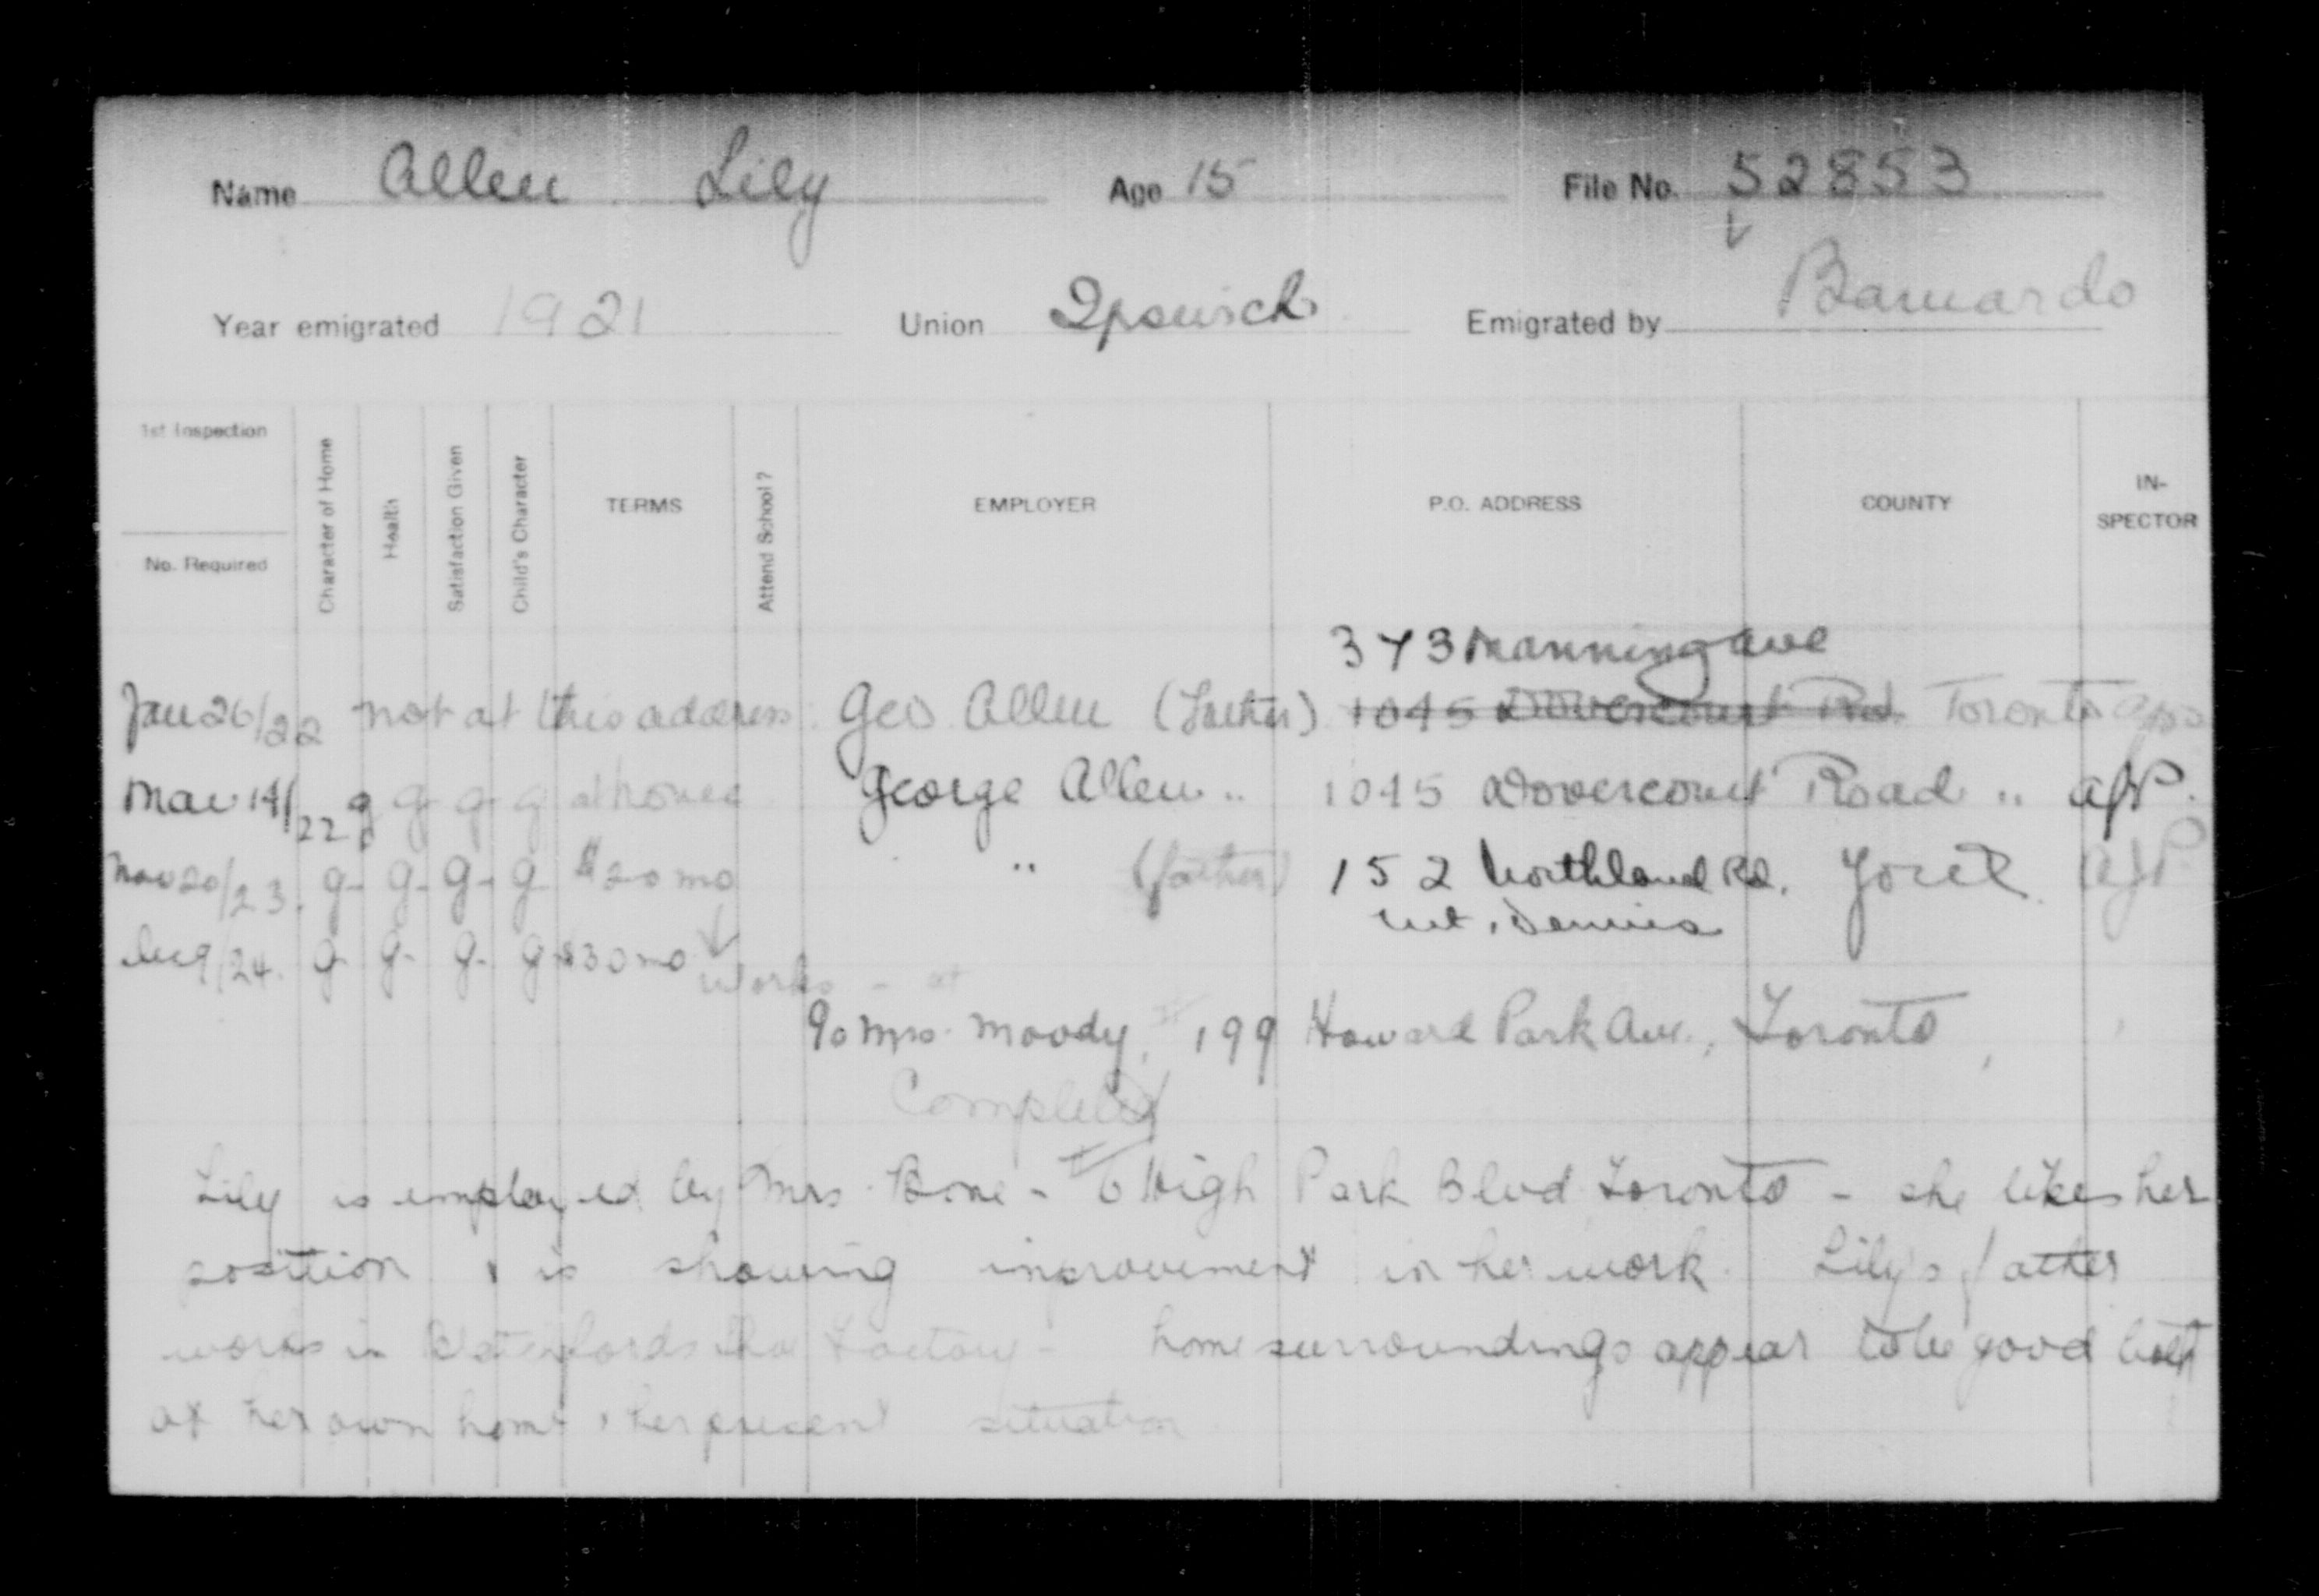 Name Allen Lily Age 15 File No. 52853
Year emigrated 1921 Union Ipswich Emigrated by Barnardo
1st Inspection
No. Required
Character of Home
Health
Satisfaction Given
Child's Character
TERMS
Attend School?
EMPLOYER
P.O. ADDRESS
COUNTY
IN-
SPECTOR
373 Manning Ave
Jan 26/22 not at this address. Geo. Allen (Father) 1045 Dovercourt Rd. Toronto
Mar 14/22 g g g g at home George Allen " 1045 Dovercourt Road " AJP.
Nov 20/23. g- g- g- g- $20 mo " (father) 152 Northland Rd. York AJP.
Mt. Dennis
9/24. g- g- g- g- $30 mo works - at
c/o Mrs. Moody, 199 Howard Park Ave., Toronto,
Completed
Lily is employed by Mrs. Bone - 6 High Park Blvd Toronto - she likes her
position & is showing improvement in her work. Lily's father
works in Factory - home surroundings appear to be good both
at her own home & her present situation